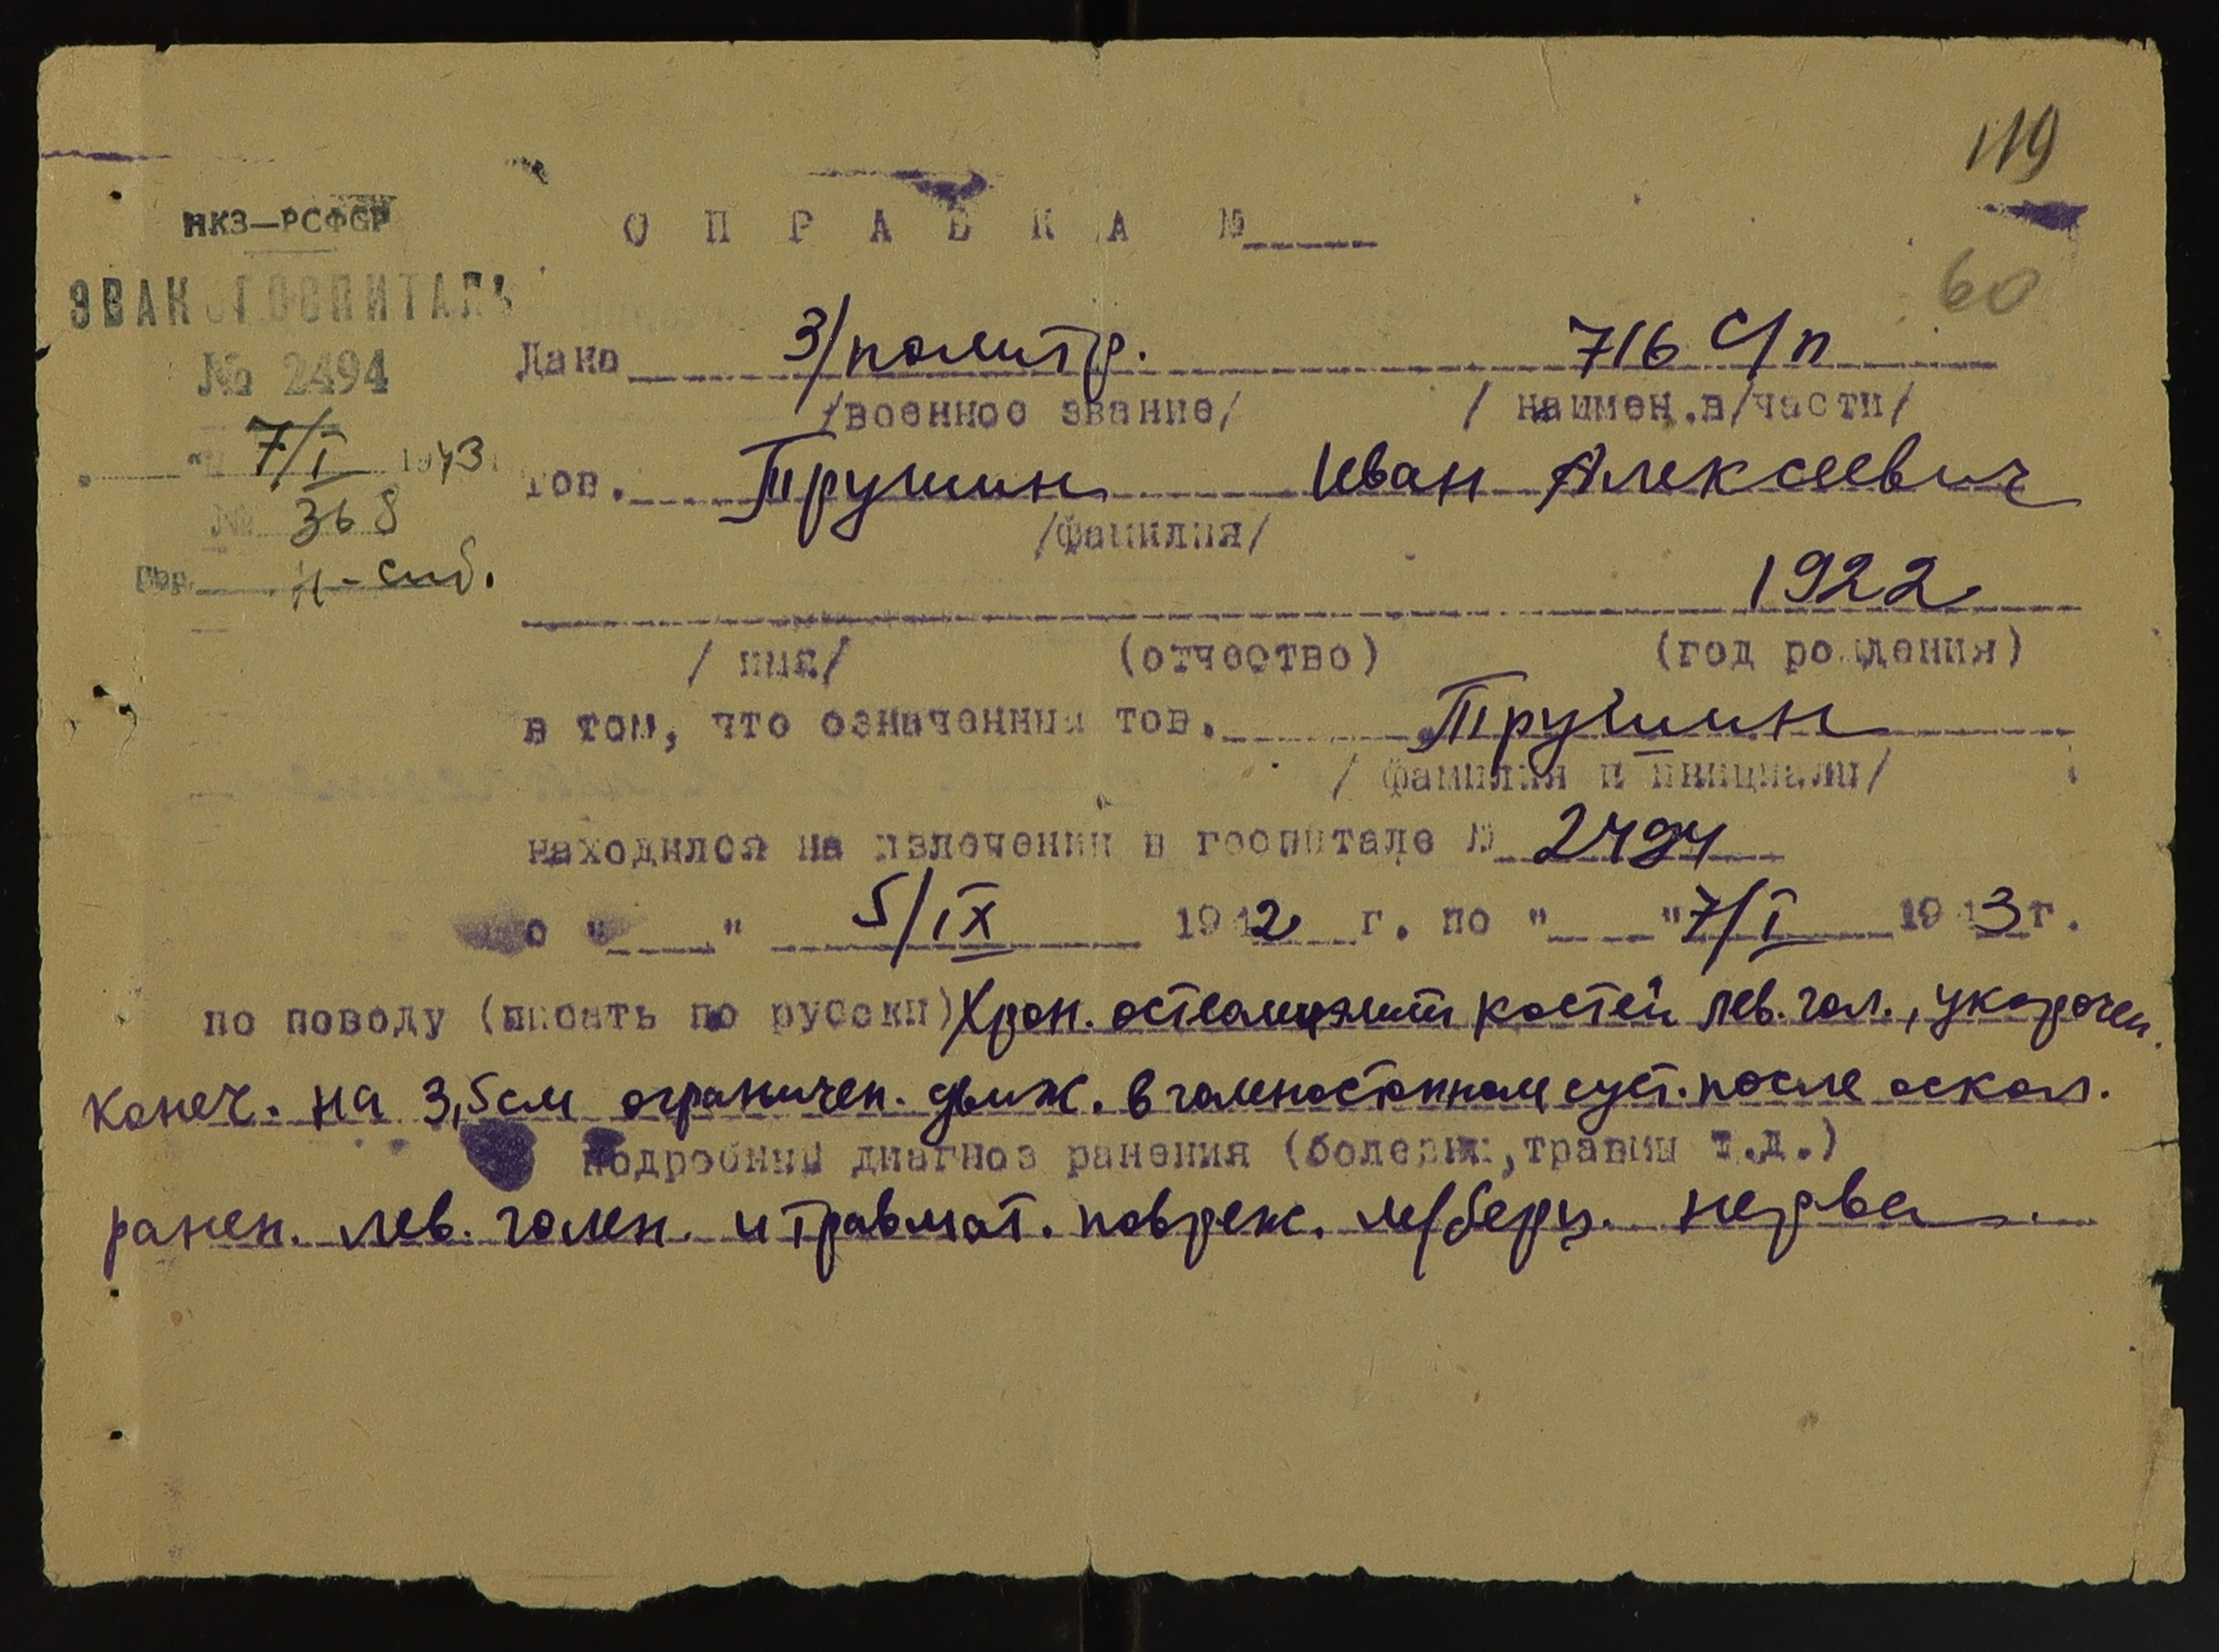 119
НКЗ—РСФСР
СПРАВКА №
60
ЭВАКОГОСПИТАЛЬ
№ 2494
Дано З/политр. 716 С/п
/военное звание/ / наимен.в/части/
" 7/I 1943
тов. Трушин Иван Алексеевич
№ 368
/фамилия/
гор. Н-Сиб.
1922
/ имя/ (отчество) (год рождения)
в том, что означенный тов. Трушин
/ фамилия и инициалы/
находился на излечении в госпитале № 2494
с " " 5/IX 1942 г. по " " 7/I 1943 г.
по поводу (писать по русски) Хрон. остеомиэлит костей лев. гол., укорочен.
конеч. на 3,5см ограничен. движ. в голеностопном суст. после оскол.
подробный диагноз ранения (болезни, травмы т.д.)
ранен. лев. голен. и травмат. повреж. м/берц. нерва.